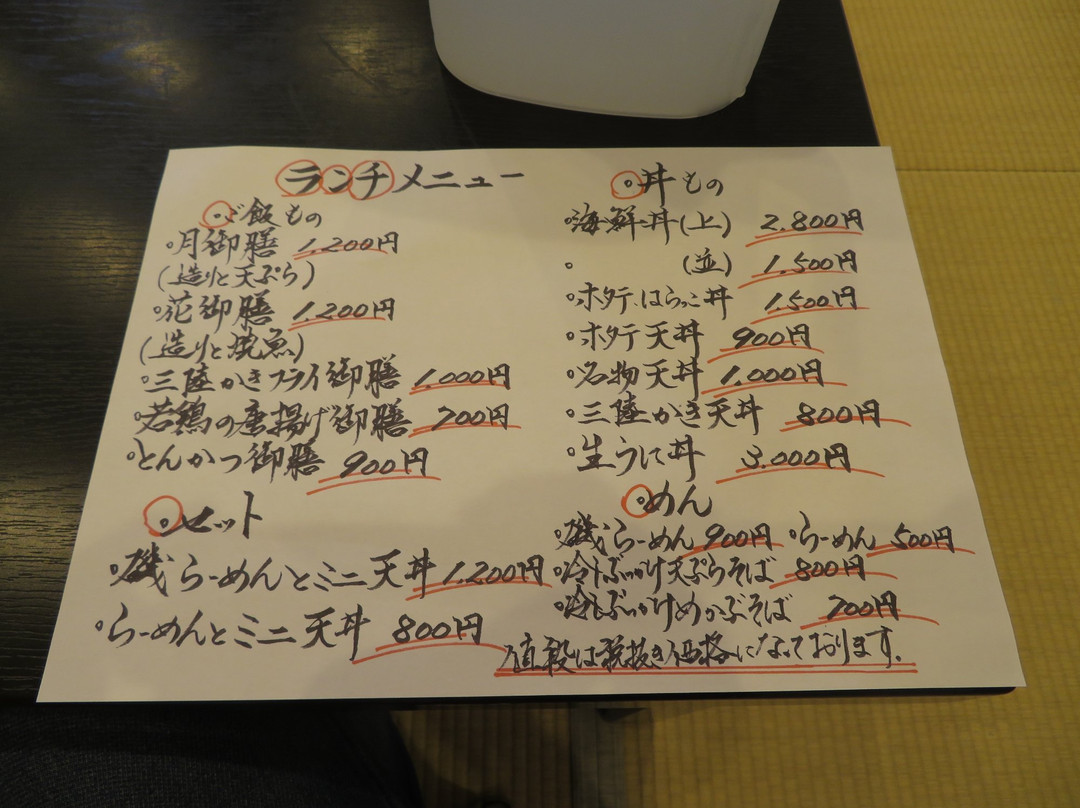 ランチメニュー
・ご飯もの
・月御膳 1.200円
(造りと天ぷら)
・花御膳 1.200円
(造りと焼魚)
・三陸かきフライ御膳 1.000円
・若鶏の唐揚げ御膳 700円
・とんかつ御膳 900円
・セット
・磯らーめんとミニ天丼 1.200円
・らーめんとミニ天丼 800円
・丼もの
・海鮮丼(上) 2.800円
・ (並) 1.500円
・ホタテ、はらっこ丼 1.500円
・ホタテ天丼 900円
・名物天丼 1.000円
・三陸かき天丼 800円
・生うに丼 3.000円
・めん
・磯らーめん 900円 ・らーめん 500円
・冷しぶっかけ天ぷらそば 800円
・冷しぶっかけめかぶそば 700円
値段は税抜き価格になっております。